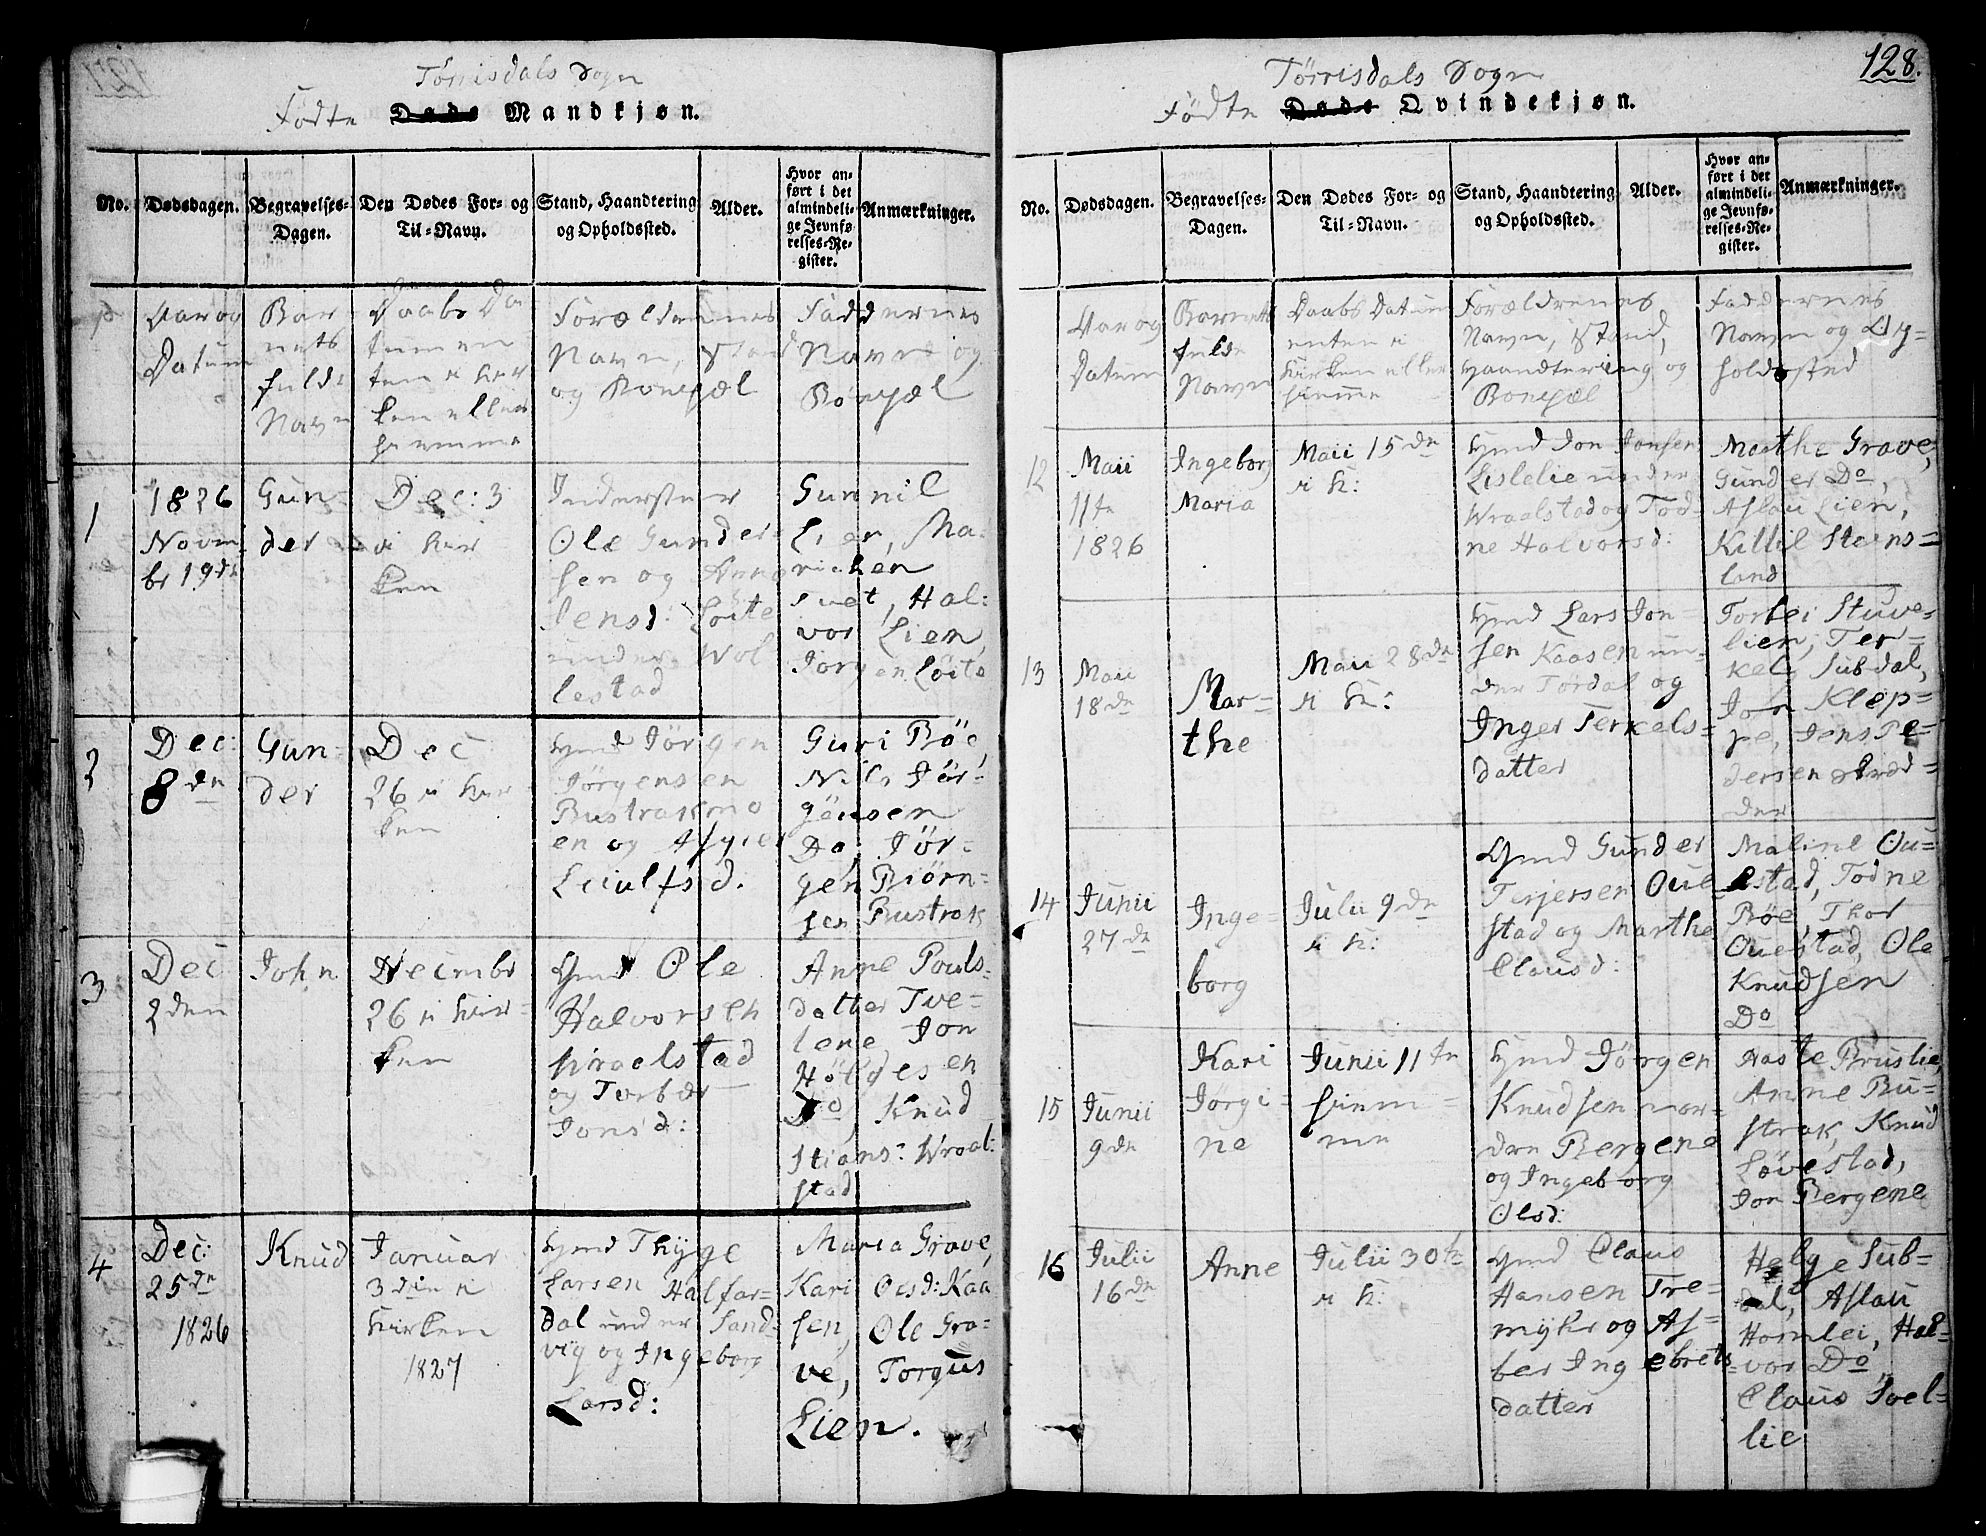 Tørrisdals Sogn
Fødte Døde Mandkjøn.
No.
Dødsdagen.
Begravelses-
Dagen.
Den Dødes For- og
Til-Navn.
Stand, Haandtering
og Opholdssted.
Alder.
Hvor an-
ført i det
almindeli-
ge Jevnfø-
relses-Re-
gister.
Anmærkninger.
Aar og
Datum
Bar
nets
fulde
Navn
Daabs Da
tum en
ten i kir
ken eller
hiemme
Forældrenes
Navn, Stand
og Bopæl
Faddernes
Navne og
Bopæl
1
1826
Novem
br 19de
Gun-
der
Dec: 3
i kir
ken
Inderster
Ole Gunder
sen og Anne
Jensd: Løite
under Wol
lestad
Gunnil
Lien, Ma-
richen
Hal:
vor Lien,
Jörgen Löite
2
Dec:
8de
Gun-
der
Dec
26 i kir-
ken
Gmd Jörgen
Jörgensen
Bustrakmo
en og Asgier
Leiulfsd.
Guri Böe,
Nils Jör-
gensen
Do, Jör-
gen Biörn-
sen Bustrak
3
Dec
2den
John
Decmbr
26 i kir-
ken
Gmd Ole
Halvorsen
Wraalstad
og Torbör
Jonsd:
Anne Pouls-
datter Tve-
lene Jon
Do, Knud
Stians: Wraal:
stad
4
Dec:
25de
1826
Knud
Januar
3die i
kirken
1827
Gmd Thyge
Larsen Halfar-
dal under Sand-
vig og Ingeborg
Larsd:
Maria Grave,
Kari Olsd: Kaa
sen, Ole Gra-
ve, Torgus
Lien.
128.
Tørrisdals Sogn
Fødte Døde Qvindekjøn.
No.
Dødsdagen.
Begravelses-
Dagen.
Den Dødes For- og
Til-Navn.
Stand, Haandtering
og Opholdssted.
Alder.
Hvor an-
ført i det
almindeli-
ge Jevnfø-
relses-Re-
gister.
Anmærkninger.
Aar og
Datum
Barnets
fulde
Navn
Daabs Datum
enten i
kirken eller
hiemme
Forældrenes
Navn, Stand,
Haandtering og
Bopæl
Faddernes
Navn og Op-
holdssted
12
Maii
11te
1826
Ingeborg
Maria
Maii 15de
i K:
Gmd Jon Jonsen
Lislelie under
Wraalstad og Tod-
ne Halvorsd:
Marthe Grave,
Gunder Do,
Aslau Lien,
Kittil Steens-
land
13
Maii
18de
Mar-
the
Maii 28de
i K:
Gmd Lars Jon-
sen Kaasen un-
der Tørdal og
Inger Terkels-
datter
Torbei Stuve-
lien, Ter-
kely Subdal,
Jon Klep-
pe, Jens Pe-
dersen
14
Junii
27de
Inge-
borg
Julii 9de
i K:
Gmd Gunder
Terjersen Oue
stad og Marthe
Clausd:
Maline Ou-
estad, Todne
Böe, Thor
Ouestad, Ole
Knudsen
Do
15
Junii
9de
Kari
Jörgi-
ne
Junii 11te
hiem-
me
Gmd Jörgen
Knudsen nor-
dre Bergene
og Ingeborg
Olsd:
Aaste Bruslie,
Anne Bu-
strak, Knud
Lövestad,
Jon Bergene
16
Julii
16de
Anne
Julii 30te
i K:
Gmd Claus
Hansen Tre-
mykr og As-
ber Ingebrets-
datter
Helge Sub-
dal, Aslau
Homlei, Hal-
vor Do
Claus Soel-
lie